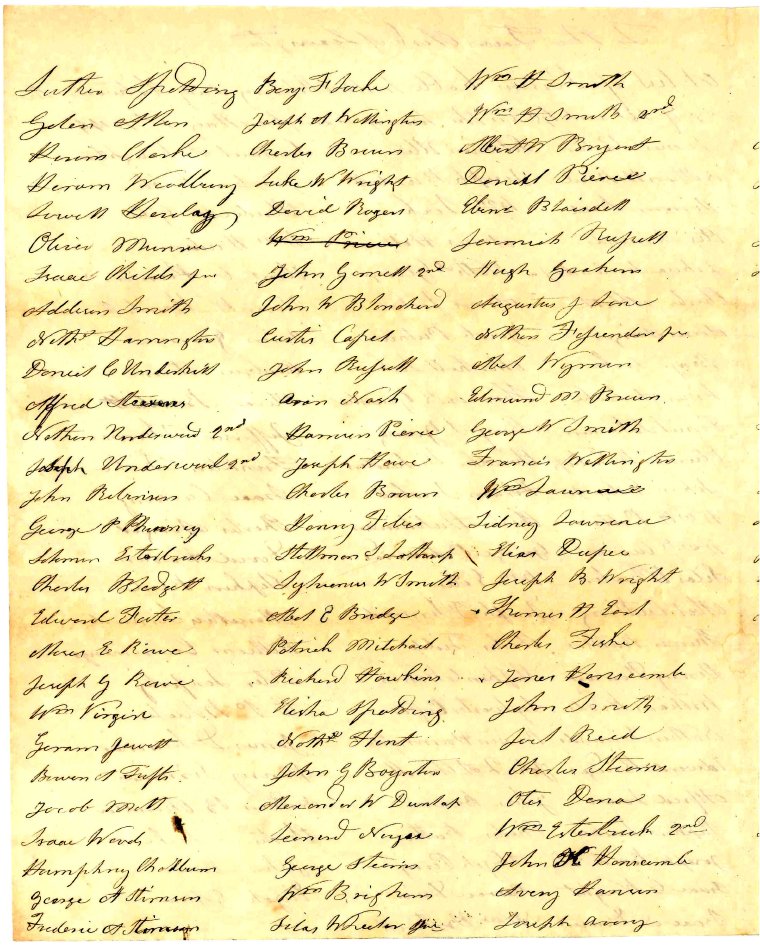 Luther Spalding Benj F Locke Wm H Smith
Galen Allen Joseph A Wellington Wm H Smith 2nd
Hiram Clarke Charles Brown Albert W Bryant
Hiram Woodbury Luke W Wright Daniel Pierce
Lowell David Rogers Eben Blaisdell
Oliver Munroe Wm Pierce Jeremiah Russell
Isaac Childs jun John Garnett 2nd Hugh Graham
Addison Smith John W Blanchard Augustus J Lane
Nathl Harrington Curtis Capel Nathan Fessenden jr
Daniel C Underhill John Russell Abel Wyman
Alfred Stevens Nash Edmund M Brown
Nathan Underwood 2nd Pierce George W Smith
Joseph Underwood 2nd Joseph Howe Francis Wellington
John Robinson Charles Brown Wm Lawrence
George P Phinney Sidney Lawrence
Solomon Estabrooks Stillman L Lothrop Elias Dupee
Charles Blodgett Sylvanus W Smith Joseph B Wright
Edward Foster Abel E Bridge Thomas H Earl
Moses E Rowe Patrick Mitchael Charles Fiske
Joseph G Rowe Richard Hawkins Jones Hanscomb
Wm Virgin Elisha Spalding John Smith
Jewett Nathl Flint Joel Reed
Bowen A Tufts John G Boynton Charles Stearns
Jacob Mott Alexander W Dunlap Otis Dana
Isaac Woods Leonard Noyes Wm Esterbrook 2nd
Humphrey Chadburn George Stearns John H Hanscomb
George A Stimson Wm Brigham Avery Hanson
Frederic A Stimson Silas Wheeler Joseph Avery